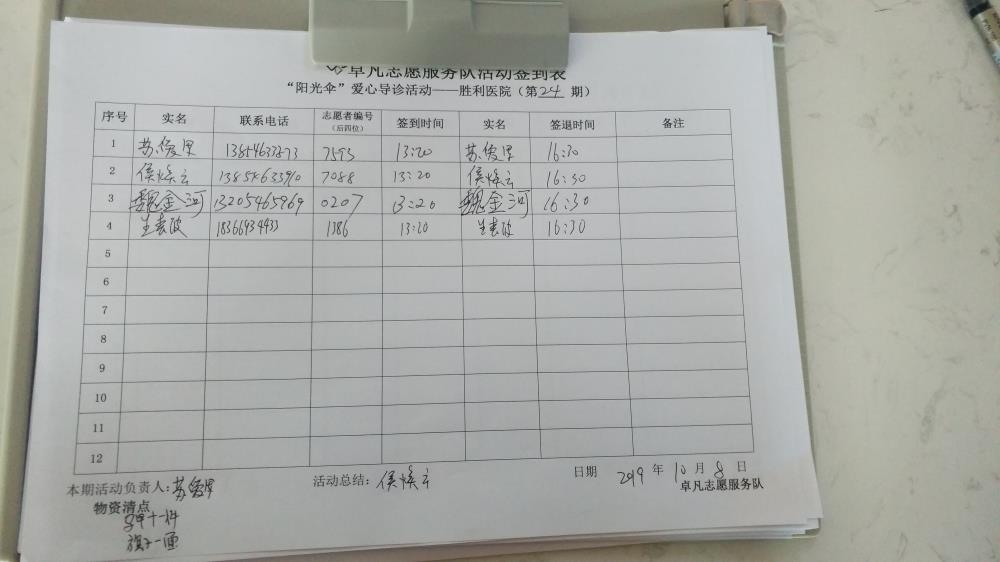 卓凡志愿服务队活动签到表
“阳光伞”爱心导诊活动——胜利医院（第24期）
序号 实名 联系电话 志愿者编号（后四位） 签到时间 实名 签退时间 备注
1 苏俊里 7593 13:20 苏俊里 16:30
2 侯焕云 13854633910 7088 13:20 侯焕云 16:30
3 魏金河 13205465969 0207 13:20 魏金河 16:30
4 1386 13:20 16:30
5
6
7
8
9
10
11
12
本期活动负责人：苏俊里 活动总结：侯焕云 日期 2019年10月8日
物资清点 卓凡志愿服务队
十一件
旗子一面